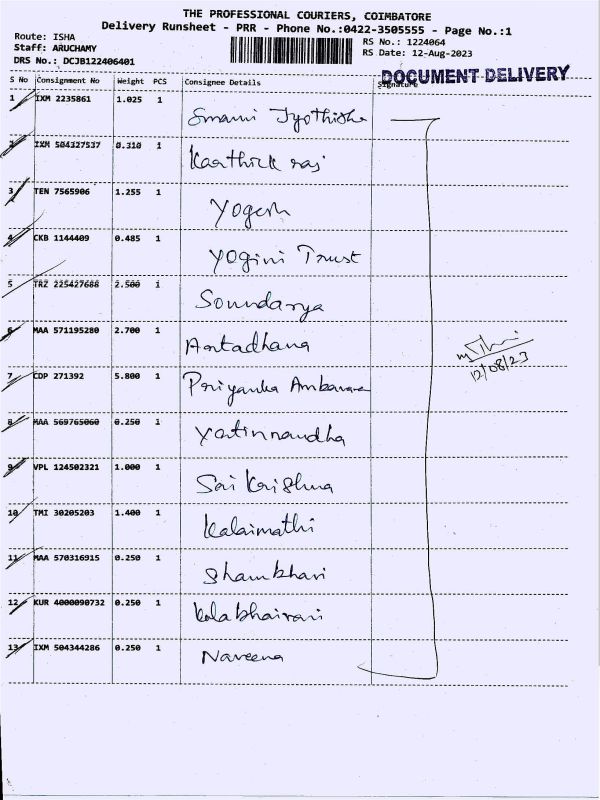 THE PROFESSIONAL COURIERS, COIMBATORE
Delivery Runsheet - PRR - Phone No.:0422-3505555 - Page No.:1
Route: ISHA
Staff: ARUCHAMY
DRS No.: DCJB122406401
RS No.: 1224064
RS Date: 12-Aug-2023
DOCUMENT DELIVERY
S No Consignment No Weight PCS Consignee Details Signature
1 IXM 2235861 1.025 1 Swami Jyothisha
2 IXM 504327537 0.310 1 Kaarthick raj
3 TEN 7565906 1.255 1 Yogesh
4 CKB 1144409 0.485 1 Yogini Trust
5 TRZ 225427688 2.500 1 Soundarya
6 MAA 571195280 2.700 1 Antadhana
7 COP 271392 5.800 1 Priyanka
8 MAA 569765060 0.250 1
9 VPL 124502321 1.000 1 Sai Krishna
10 TMI 30205203 1.400 1 Kalaimathi
11 MAA 570316915 0.250 1 Shambhavi
12 KUR 4000090732 0.250 1 kalabhairavi
13 IXM 504344286 0.250 1 Naveena
12/08/23